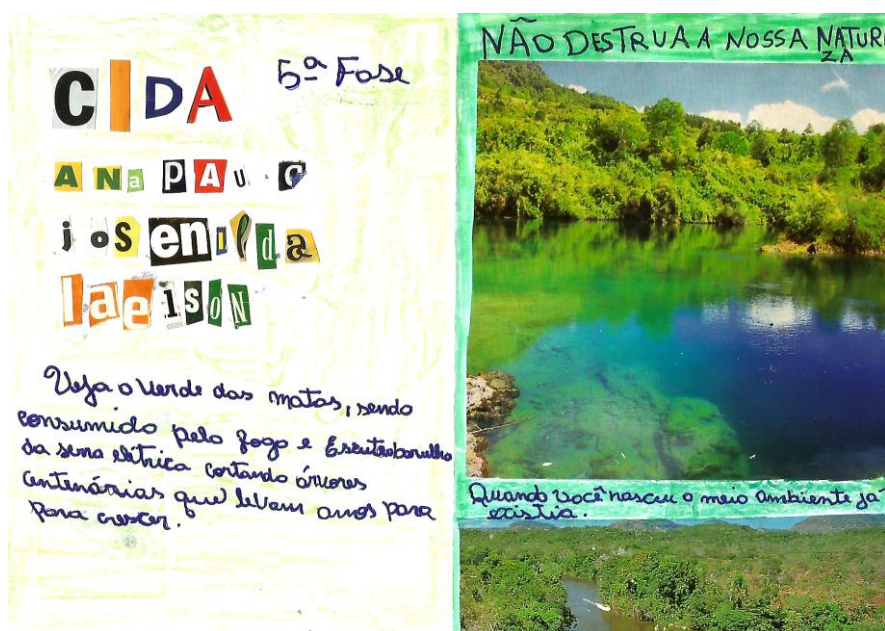 CIDA
5ª Fase
ANa PAU
josenilda
laeison
Veja o verde das matas, sendo
consumido pelo fogo e Escute barulho
da serra elétrica cortando árvores
centenárias que levam anos para
para crescer.
NÃO DESTRUA A NOSSA NATURE
ZA
Quando você nasceu o meio ambiente já
existia.